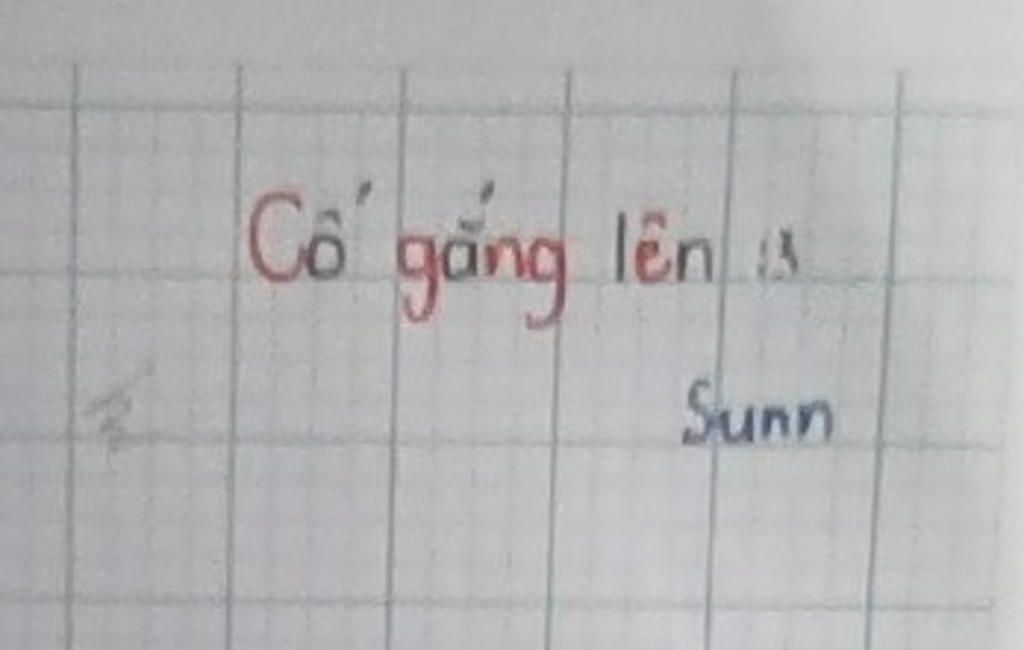 Cố gắng lên :3
Sunn